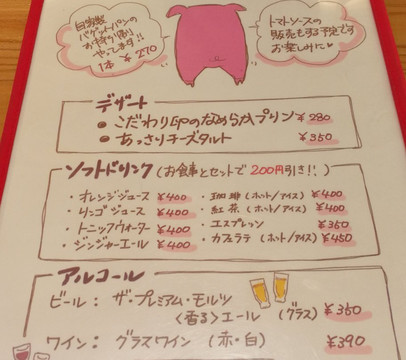 自家製
バゲットパンの
お持ち帰り
やってます!!
1本 ¥270
トマトソースの
販売もする予定です
お楽しみに♡
デザート
● こだわり のなめらかプリン ¥280
● あっさりチーズタルト ¥350
ソフトドリンク (お食事とセットで200円引き!!)
・オレンジジュース ¥400
・リンゴジュース ¥400
・トニックウォーター ¥400
・ジンジャーエール ¥400
・珈琲 (ホット/アイス) ¥400
・紅茶 (ホット/アイス) ¥400
・エスプレッソ ¥350
・カフェラテ (ホット/アイス) ¥450
アルコール
ビール: ザ・プレミアム・モルツ
〈香る〉エール (グラス) ¥350
ワイン: グラスワイン (赤・白) ¥390